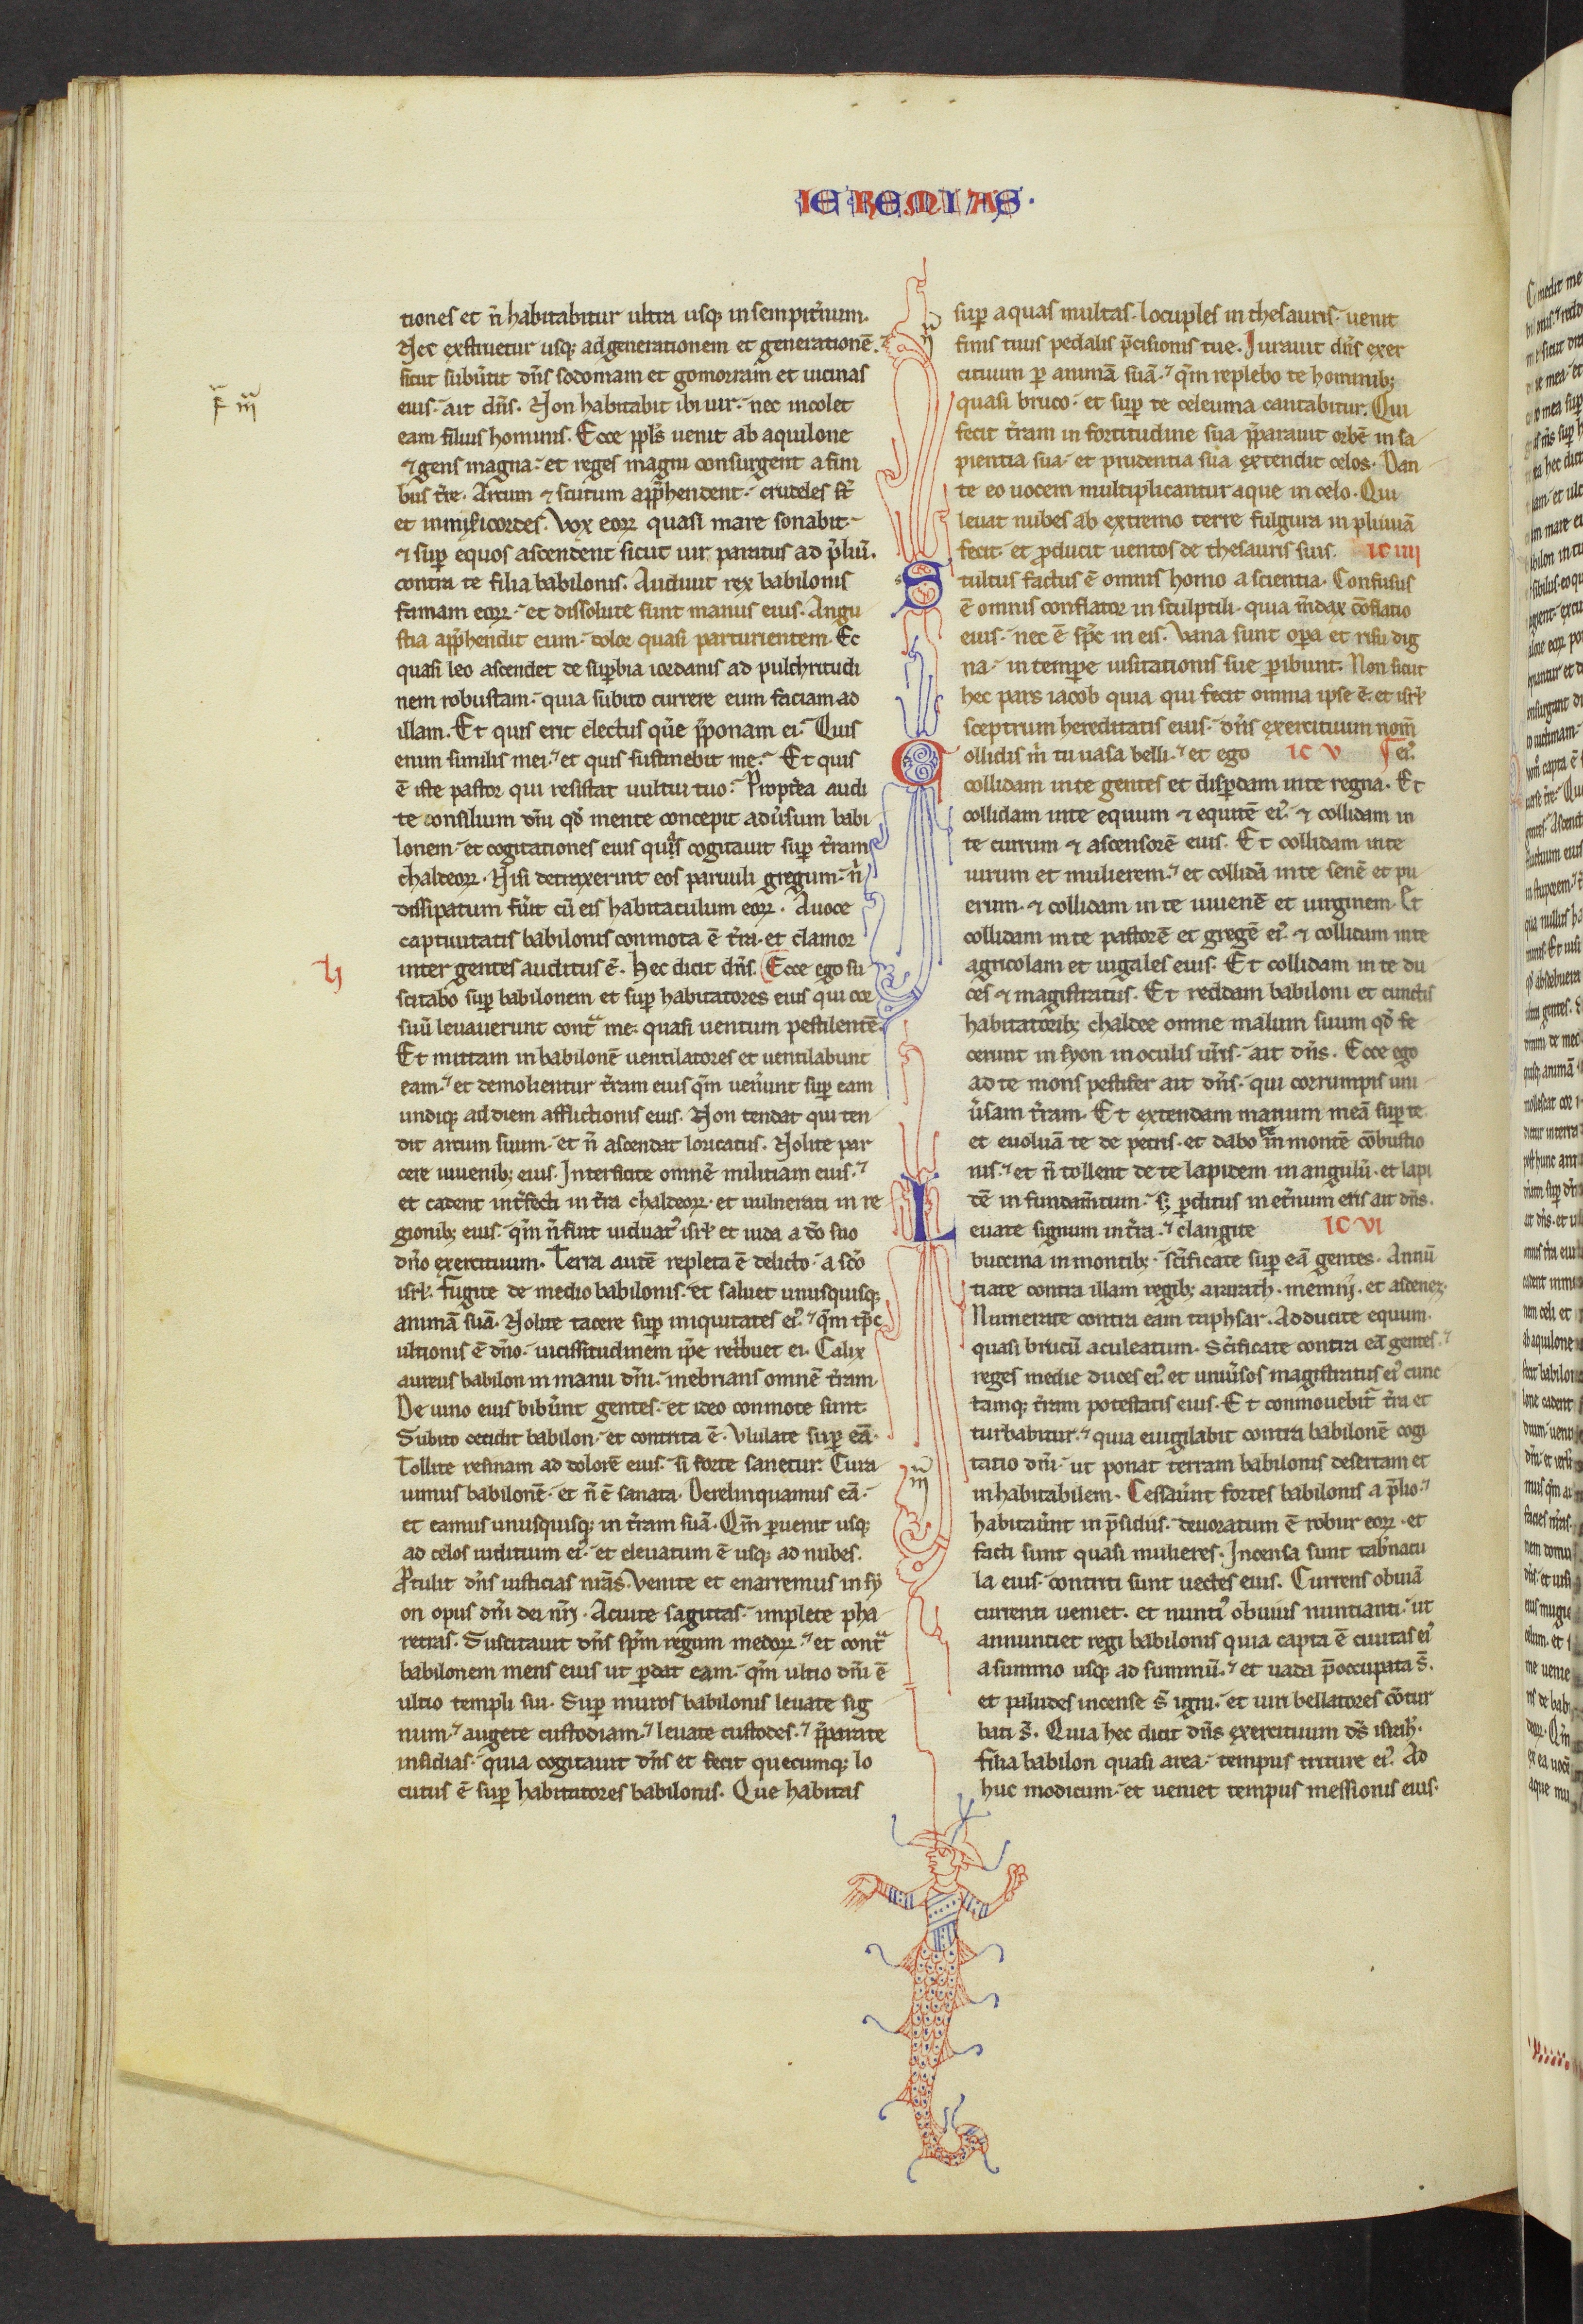 IEREMIAS.
tiones et n̄ habitabitur ultra usq; in sempit̄num.
Nec exstruetur usq; ad generationem et generationē.
sicut subūtit dn̄s sodomam et gomorram et uicinas
eius. ait dn̄s. Non habitabit ibi uir. nec incolet
eam filius hominis. Ecce ppl̄s uenit ab aquilone
⁊ gens magna. et reges magni consurgent a fini
bus t̄re. Arcum ⁊ scutum app̄hendent. crudeles st̄
et inmisicordes. Vox eoꝝ quasi mare sonabit.
⁊ suꝑ equos ascendent sicut uir paratus ad p̄liū.
contra te filia babilonis. Audiuit rex babilonis
famam eoꝝ. et dissolute sunt manus eius. Angu
stia app̄hendit eum. dolor quasi parturientem. Ec
quasi leo ascendet de suꝑbia iordanis ad pulchritudi
nem robustam. quia subito currere eum faciam ad
illam. Et quis erit electus que p̄ponam ei. Quis
enim similis mei. et quis sustinebit me. Et quis
ē iste pastor qui resistat uultui tuo. Propt̄ea audi
te consilium dn̄i qd̄ mente concepit adūsum babi
lonem. et cogitationes eius quas cogitauit suꝑ t̄ram
chaldeoꝝ. Nisi detraxerint eos paruuli gregum. n̄
dissipatum fūit cū eis habitaculum eoꝝ. A uoce
captiuitatis babilonis conmota ē t̄ra. et clamor
LI
inter gentes auditus ē. Hec dicit dn̄s. Ecce ego su
scitabo suꝑ babilonem et suꝑ habitatores eius qui cor
suū leuauerunt cont̄ me. quasi uentum pestilentē.
Et mittam in babilonē uentilatores et uentilabunt
eam. et demolientur t̄ram eius qm̄ uen̄unt suꝑ eam
undiq; ad diem afflictionis eius. Non tendat qui ten
dit arcum suum. et n̄ ascendat loricatus. Nolite par
cere iuuenib; eius. Interficite omnē militiam eius.
et cadent int̄fecti in t̄ra chaldeoꝝ. et uulnerati in re
gionib; eius. qm̄ n̄ fuit uiduat᾽ isrl̄ et iuda a dō suo
dn̄o exercituum. Terra autē repleta ē delicto. a scō
isrl̄. Fugite de medio babilonis. et saluet unusquisq;
animā suā. Nolite tacere suꝑ iniquitates ei᾽. qm̄ tp̄s
ultionis ē dn̄o. uicissitudinem ip̄e ret̄buet ei. Calix
aureus babilon in manu dn̄i. inebrians omnē t̄ram.
De uino eius bibūnt gentes. et ideo conmote sunt
Subito cecidit babilon. et contrita ē. Vlulate suꝑ eā.
Tollite resinam ad dolorē eius. si forte sanetur. Cura
uimus babilonē. et n̄ ē sanata. Derelinquamus eā.
et eamus unusquisq; in t̄ram suā. Qm̄ ꝑuenit usq;
ad celos iuditium ei᾽. et eleuatum ē usq; ad nubes.
Ꝓtulit dn̄s iusticias nr̄as. Venite et enarremus in sy
on opus dn̄i dei nr̄i. Acuite sagittas. implete pha
retras. Suscitauit dn̄s spm̄ regum medoꝝ. et cont̄
babilonem mens eius ut ꝑdat eam. qm̄ ultio dn̄i ē
ultio templi sui. Suꝑ muros babilonis leuate sig
num. augete custodiam. leuate custodes. p̄parate
insidias. quia cogitauit dn̄s et fecit quecumq; lo
cutus ē suꝑ habitatores babilonis. Que habitas
suꝑ aquas multas. locuples in thesauris. uenit
finis tuus pedalis p̄cisionis tue. Iurauit dn̄s exer
cituum ꝑ animā suā. qm̄ replebo te hominib;
quasi bruco. et suꝑ te celeuma cantabitur. Qui
fecit t̄ram in fortitudine sua p̄parauit orbē in sa
pientia sua. et prudentia sua extendit celos. Dan
te eo uocem multiplicantur aque in celo. Qui
leuat nubes ab extremo terre fulgura in pluuiā
fecit. et ꝓducit uentos de thesauris suis. IC IIII
Stultus factus ē omnis homo a scientia. Confusus
ē omnis conflator in sculptili. quia m̄dax cōflatio
eius. nec ē sp̄c in eis. Vana sunt oꝑa et risu dig
na. in tempe uisitationis sue ꝑibunt. Non sicut
hec pars iacob quia qui fecit omnia ipse ē. et isrl̄
sceptrum hereditatis eius. dn̄s exercituum nom̄
Collidis m̄ tu uasa belli. et ego IC V ei᾽.
collidam in te gentes et disꝑdam in te regna. Et
collidam in te equum ⁊ equitē ei᾽. ⁊ collidam in
te currum ⁊ ascensorē eius. Et collidam in te
uirum et mulierem. et collidā in te senē et pu
erum. ⁊ collidam in te iuuenē et uirginem. Et
collidam in te pastorē et gregē ei᾽. ⁊ collidam in te
agricolam et iugales eius. Et collidam in te du
ces ⁊ magistratus. Et reddam babiloni et cunctis
habitatorib; chaldee omne malum suum qd̄ fe
cerunt in syon in oculis ur̄is. ait dn̄s. Ecce ego
ad te mons pestifer ait dn̄s. qui corrumpis uni
ūsam t̄ram. Et extendam manum meā suꝑ te
et euoluā te de petris. et dabo te in montē cōbustio
nis. et n̄ tollent de te lapidem in angulū. et lapi
dē in fundam̄tum. s; ꝑditus in et̄num eris ait dn̄s.
Leuate signum in t̄ra. clangite IC VI
buccina in montib;. sc̄ificate suꝑ eā gentes. Annū
tiate contra illam regib; ararath. menni. et ascenez.
Numerate contra eam taphsar. Adducite equum.
quasi brucū aculeatum. Sc̄ificate contra eā gentes.
reges medie duces ei᾽. et uniūsos magistratus ei᾽ cunc
tamq; t̄ram potestatis eius. Et conmouebit̄ t̄ra et
turbabitur. quia euigilabit contra babilonē cogi
tatio dn̄i. ut ponat terram babilonis desertam et
inhabitabilem. Cessaūnt fortes babilonis a p̄lio.
habitaūnt in p̄sidiis. deuoratum ē robur eoꝝ. et
facti sunt quasi mulieres. Incensa sunt tab̄nacu
la eius. contriti sunt uectes eius. Currens obuiā
currenti ueniet. et nunti᾽ obuius nuntianti. ut
annuntiet regi babilonis quia capta ē ciuitas ei᾽
a summo usq; ad summū. et uada p̄occupata s̄.
et paludes incense s̄ igni. et uiri bellatores cōtur
bati s̄. Quia hec dicit dn̄s exercituum ds̄ isrl̄.
filia babilon quasi area. tempus triture ei᾽. Ad
huc modicum. et ueniet tempus messionis eius.